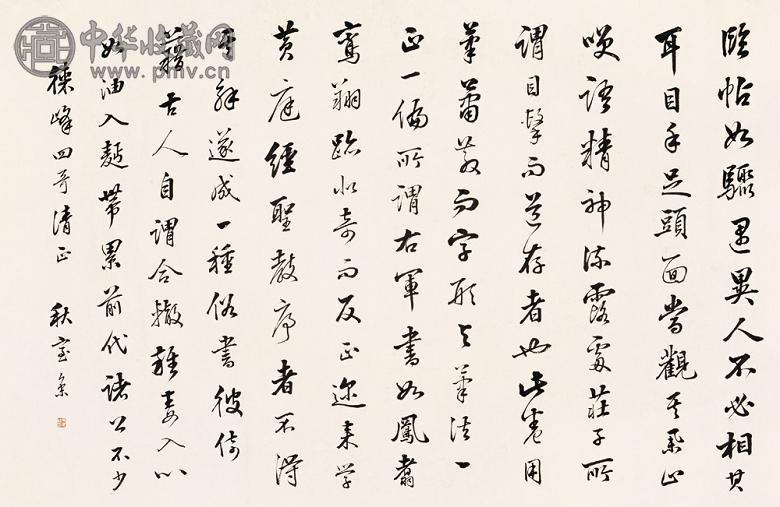 臨帖如驟遇異人不必相其
耳目手足頭面當觀其舉止
咲語精神流露處莊子所
謂目擊而道存者也此卷用
筆蕭散而字形與筆法一
正一偏所謂右軍書如鳳翥
鸞翔跡似奇而反正邇來學
黃庭經聖教序者不得
其解遂成一種俗書彼倚
藉古人自謂合轍雜毒入心
如油入麪帶累前代諸公不少
峰四哥清正
秋室
中华收藏网
www.pmv.cn